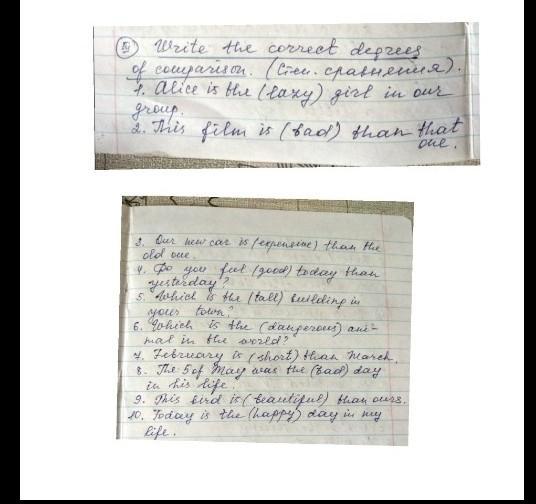 IV Write the correct degrees
of comparison. (Степ. сравнения).
1. Alice is the (lazy) girl in our
group.
2. This film is (bad) than that
one.
3. Our new car is (expensive) than the
old one.
4. Do you feel (good) today than
yesterday?
5. Which is the (tall) building in
your town?
6. Which is the (dangerous) ani-
mal in the world?
7. February is (short) than March.
8. The 5 of May was the (bad) day
in his life.
9. This bird is (beautiful) than ours.
10. Today is the (happy) day in my
life.